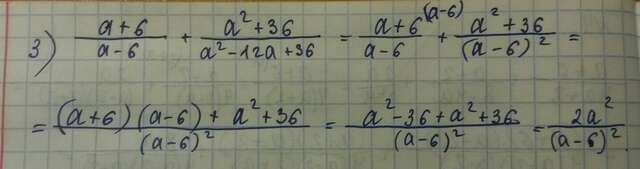 3) (a+6)/(a-6) + (a²+36)/(a²-12a+36) = (a+6^(a-6))/(a-6) + (a²+36)/(a-6)² =
= ((a+6)(a-6)+a²+36)/(a-6)² = (a²-36+a²+36)/(a-6)² = 2a²/(a-6)².